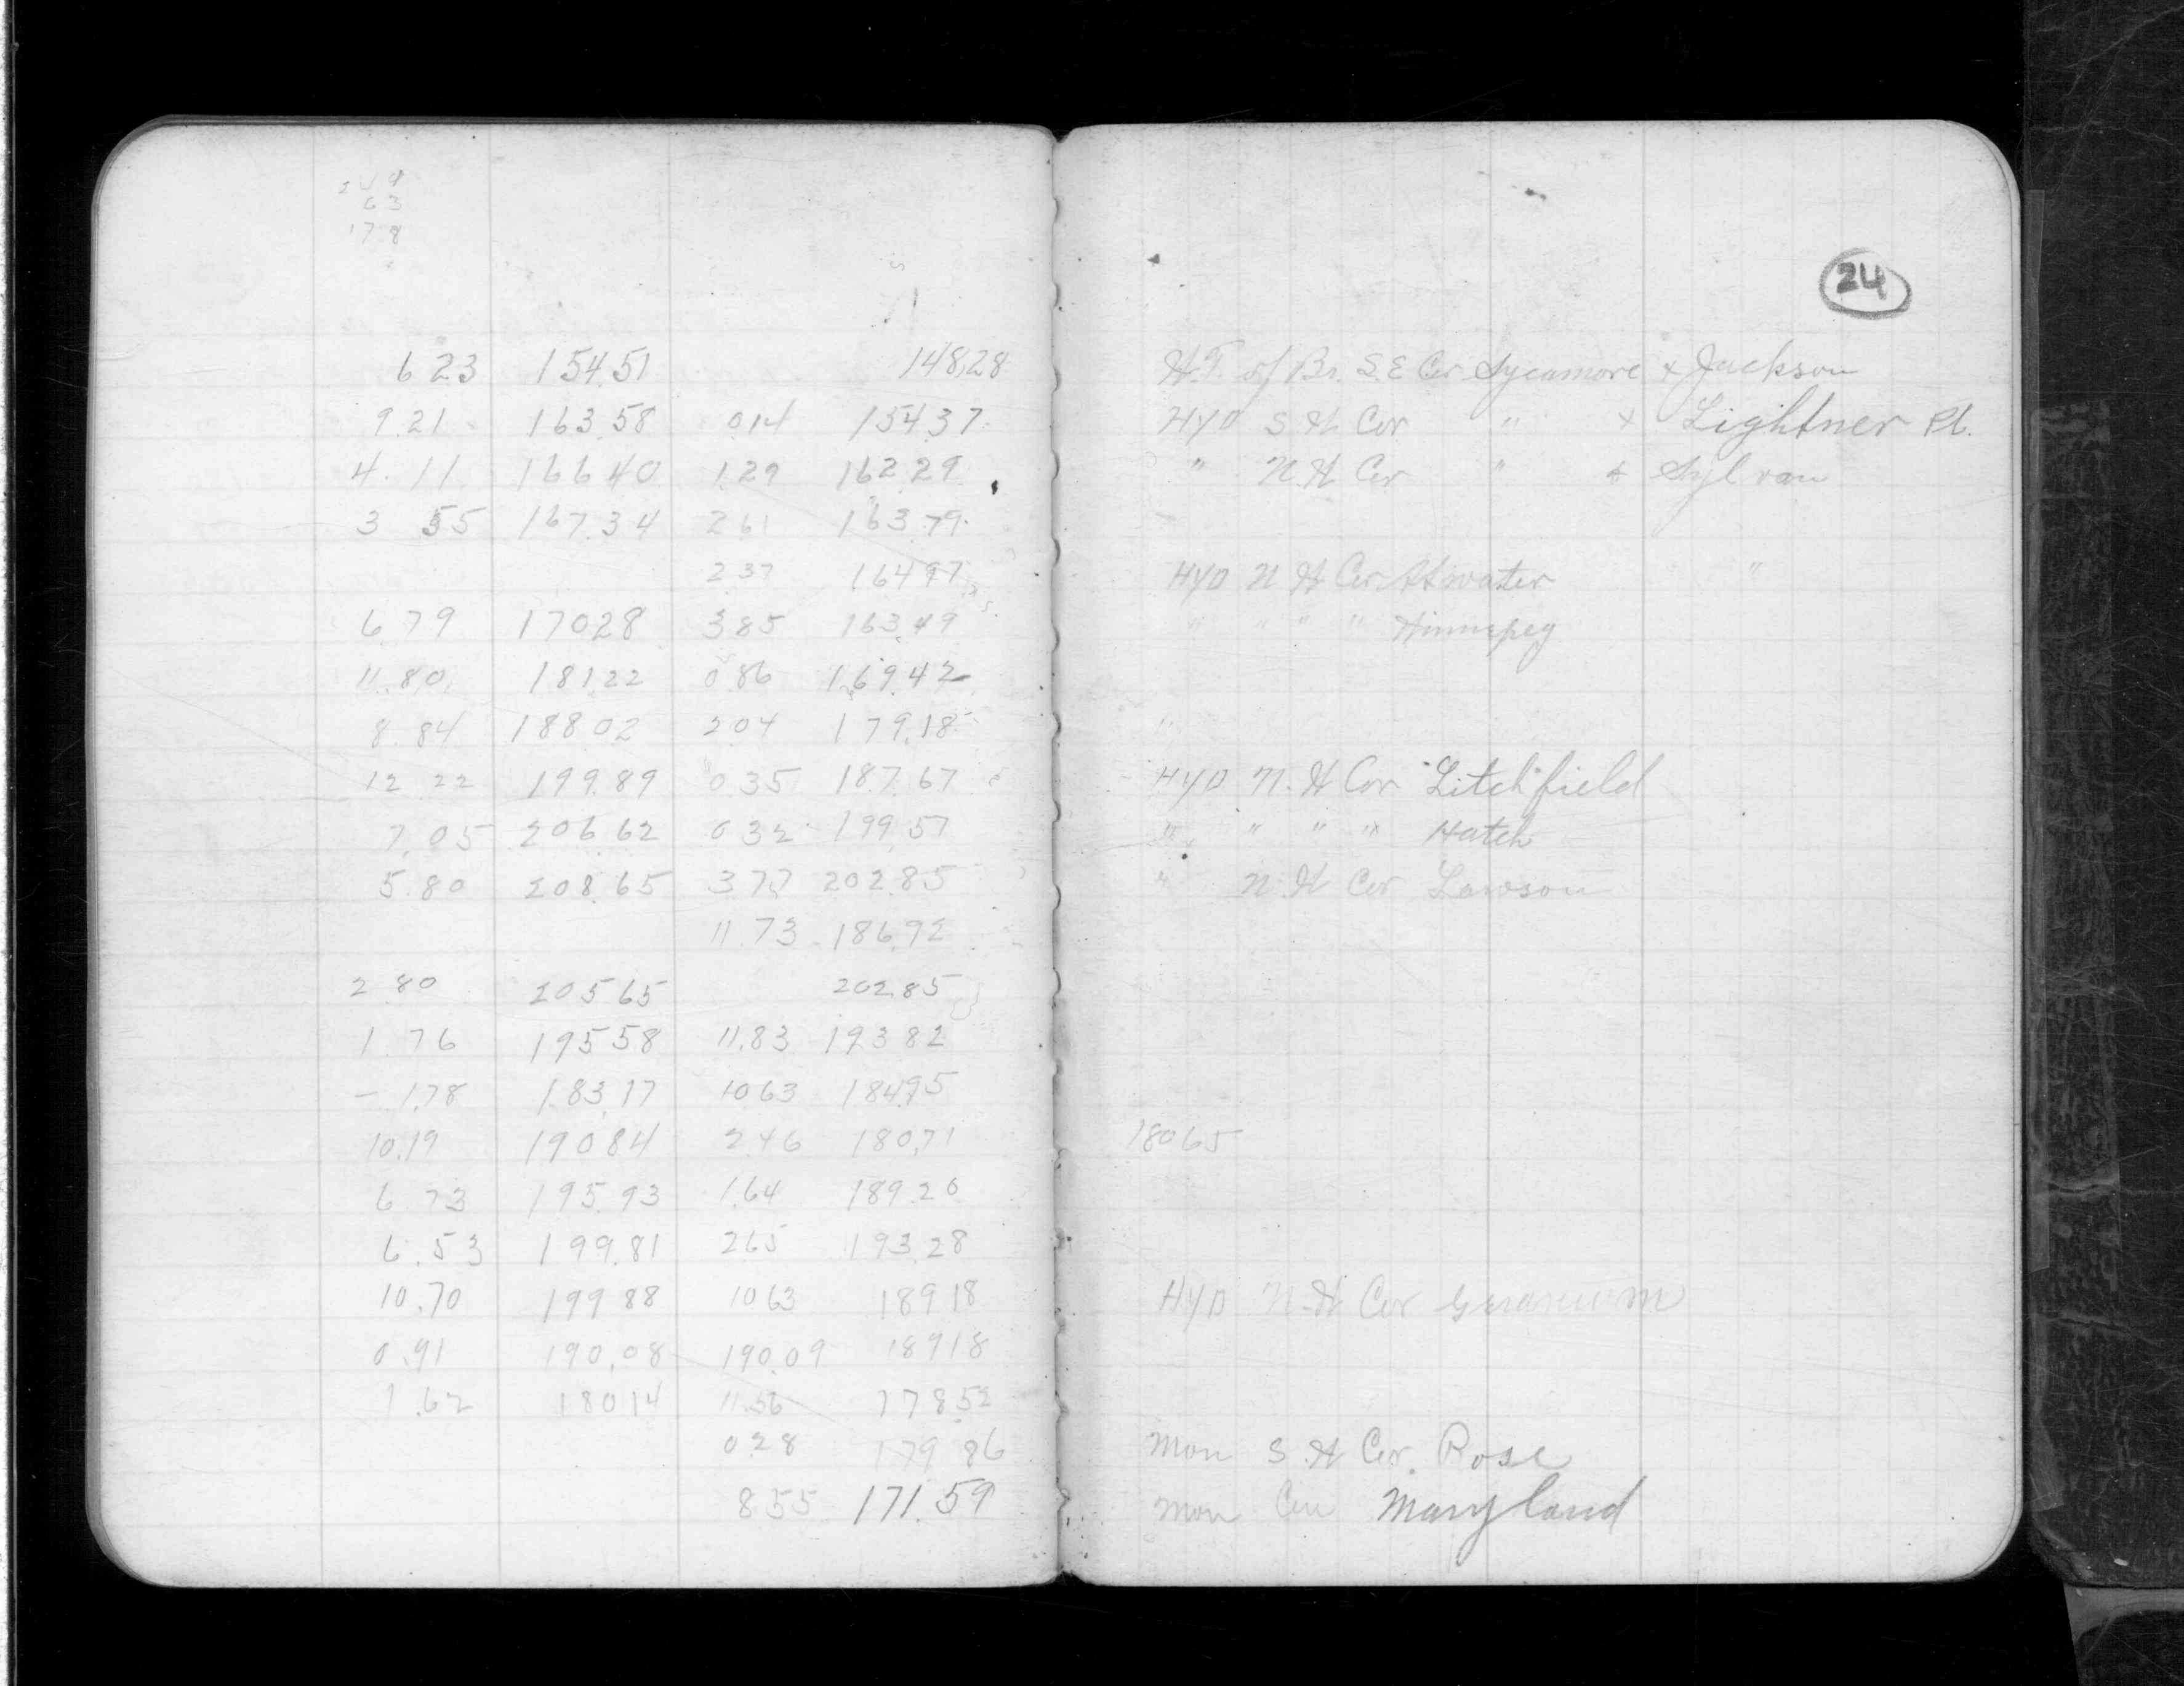 249
63
178
24
6 23 154.51 148.28 W.T. of Br. S.E Cor Sycamore & Jackson
9.21 163.58 0.14 154.37 HYD S W Cor " & Lightner Pl.
4.11 166 40 1.29 162 29 " N.W Cor " & Sylvan
3 55 167.34 2 61 163.79
2 37 164 97 HYD N W Cor Atwater "
6 79 170 28 3 85 163.49 " " " " Winnepeg
11.80 181 22 0 86 169.42
8.84 188 02 2 04 179.18 "
12 22 199.89 0 35 187.67 HYD N.W Cor Litchfield
7.05 206.62 0 32 199.57 " " " " Hatch
5.80 208.65 3 77 202.85 " N.W Cor Lawson
11.73 186.92
2 80 205 65 202.85
1.76 195 58 11.83 193 82
- 1.78 183.17 10 63 184.95
10.19 190 84 2.46 180.71 180 65
6 73 195.93 1.64 189.20
6.53 199.81 2 65 193.28
10.70 199 88 10 63 189 18 HYD N.W Cor Geranium
0.91 190.08 190.09 189 18
1.62 180 14 11.56 178 52
0 28 179 86 Mon S.W Cor. Rose
8 55 171.59 Mon Cen Maryland